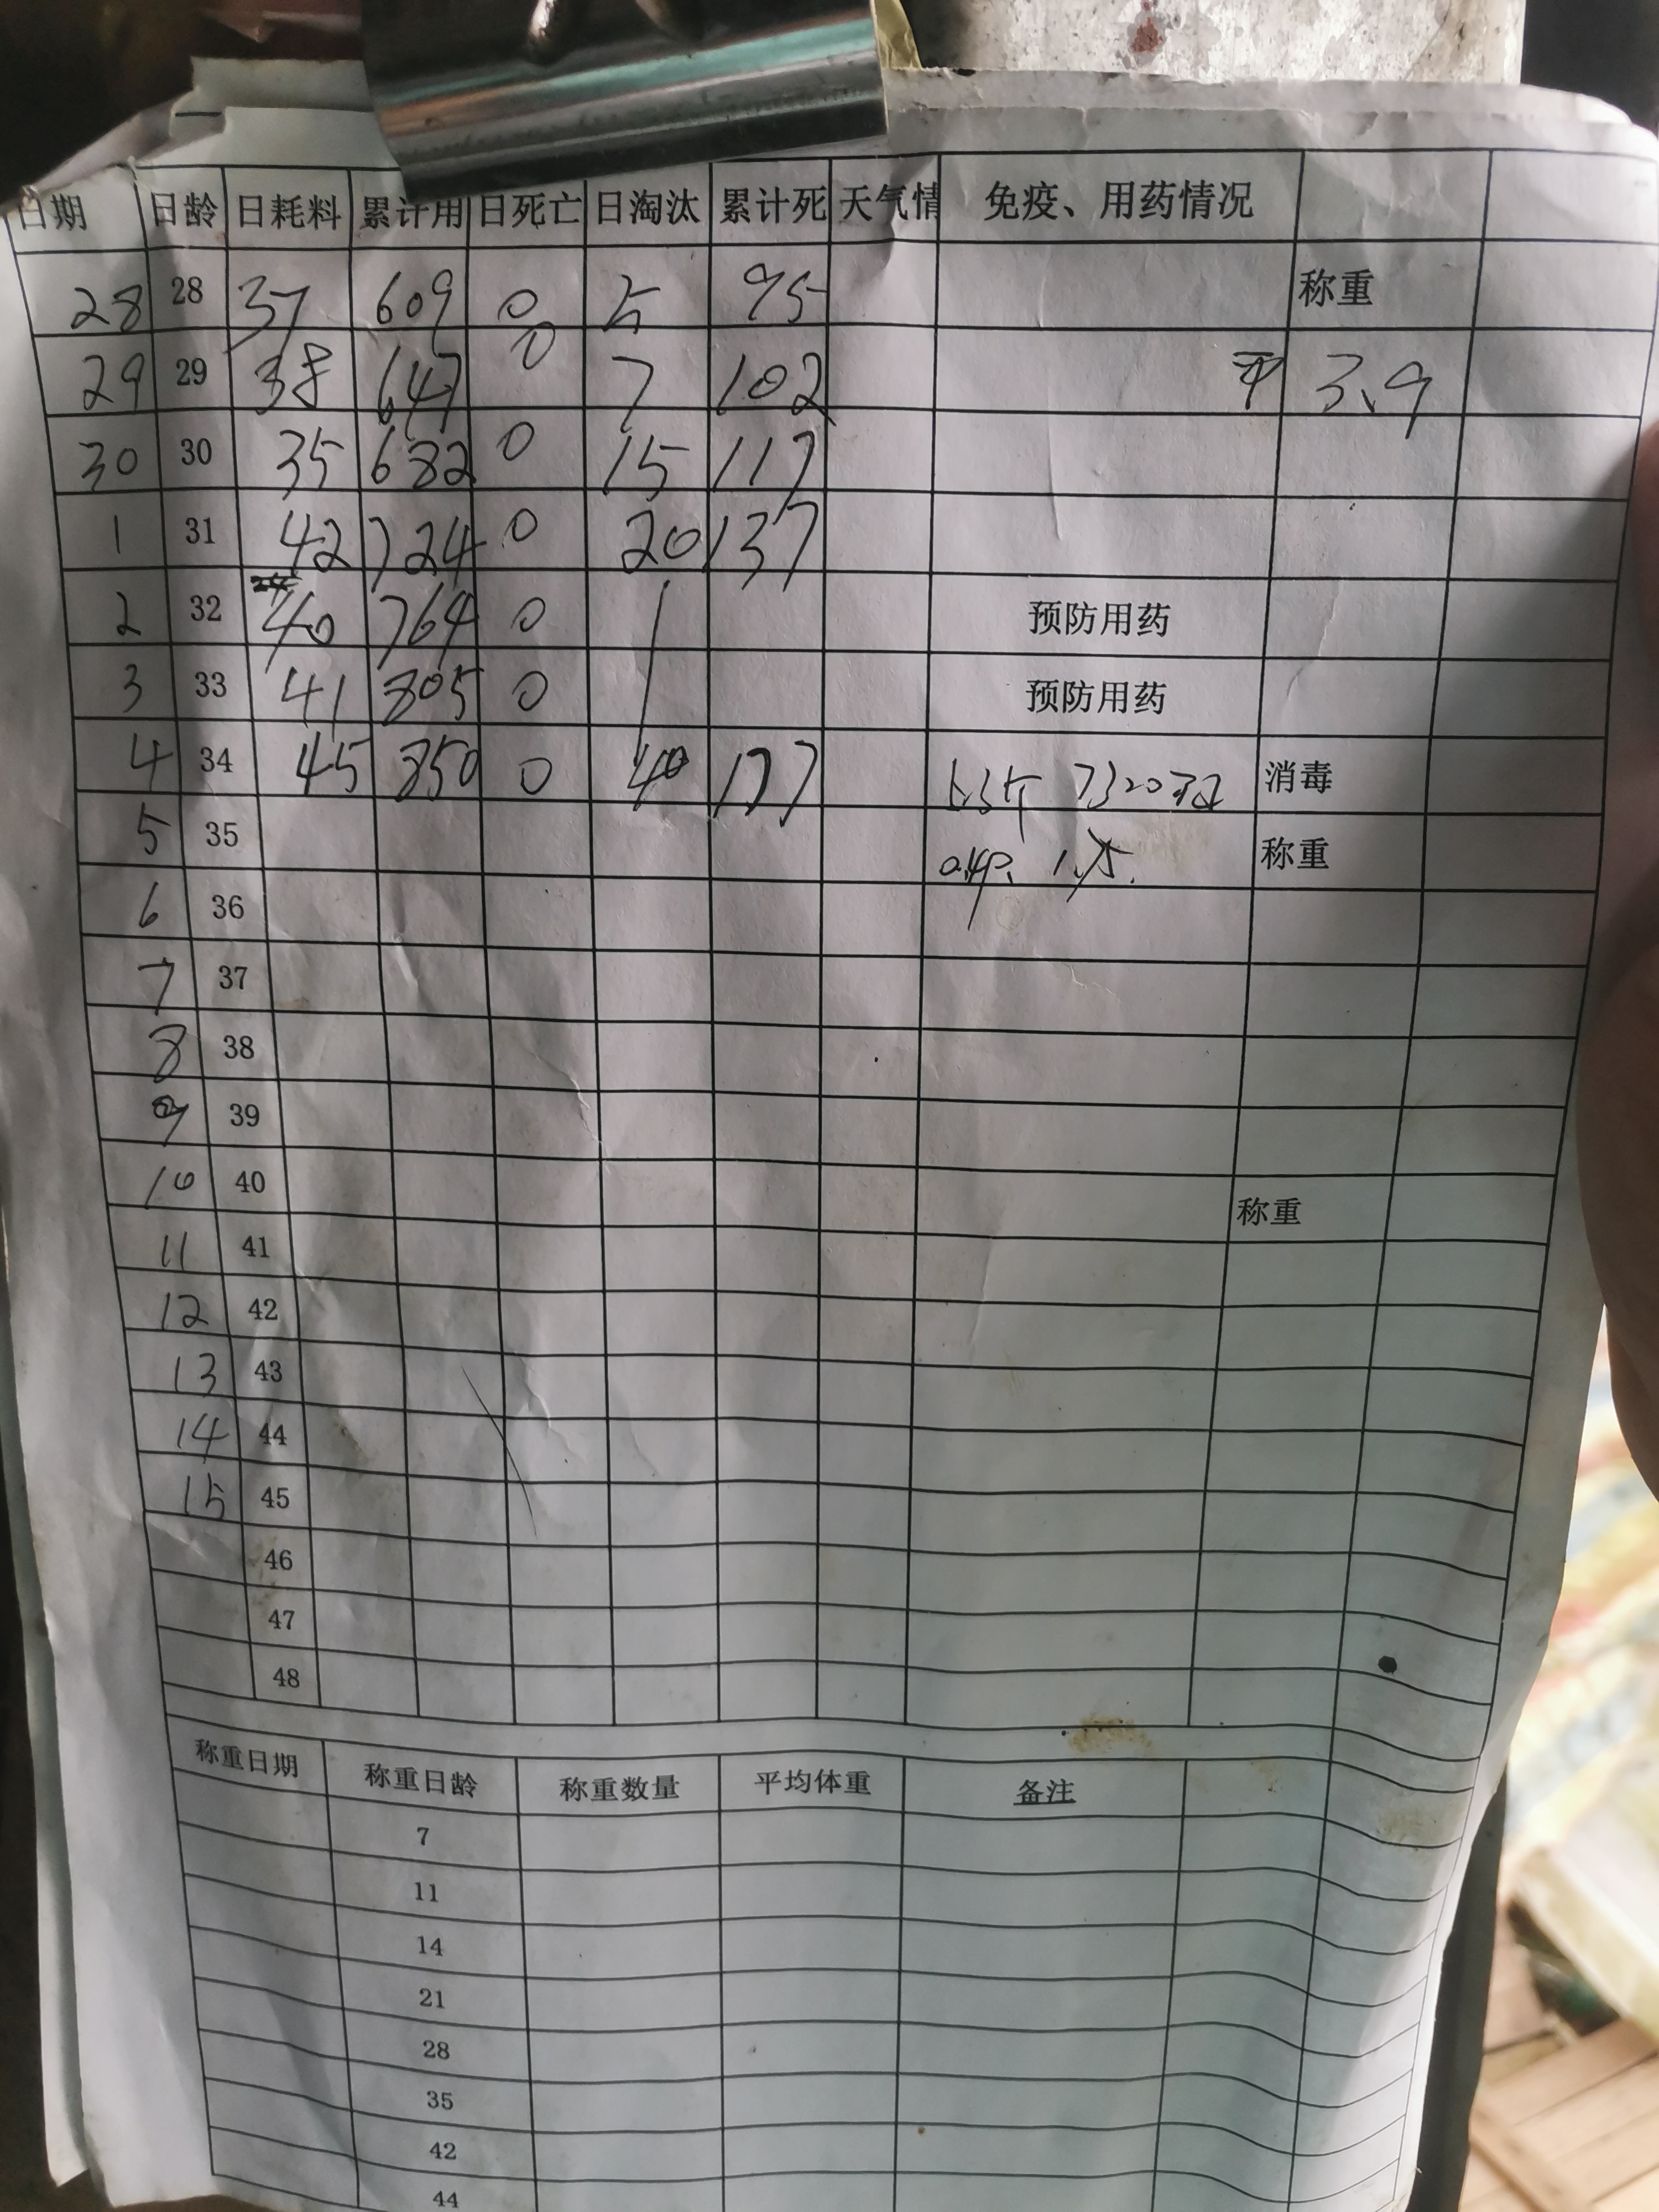 日期 日龄 日耗料 累计用 日死亡 日淘汰 累计死 天气情 免疫、用药情况
28 28 37 609 0 5 95 称重
29 29 38 647 0 7 102 平 3.9
30 30 35 682 0 15 117
1 31 42 724 0 20 137
2 32 40 764 0 预防用药
3 33 41 805 0 预防用药
4 34 45 850 0 40 177 消毒
5 35 称重
6 36
7 37
8 38
9 39
10 40 称重
11 41
12 42
13 43
14 44
15 45
46
47
48
称重日期 称重日龄 称重数量 平均体重 备注
7
11
14
21
28
35
42
44